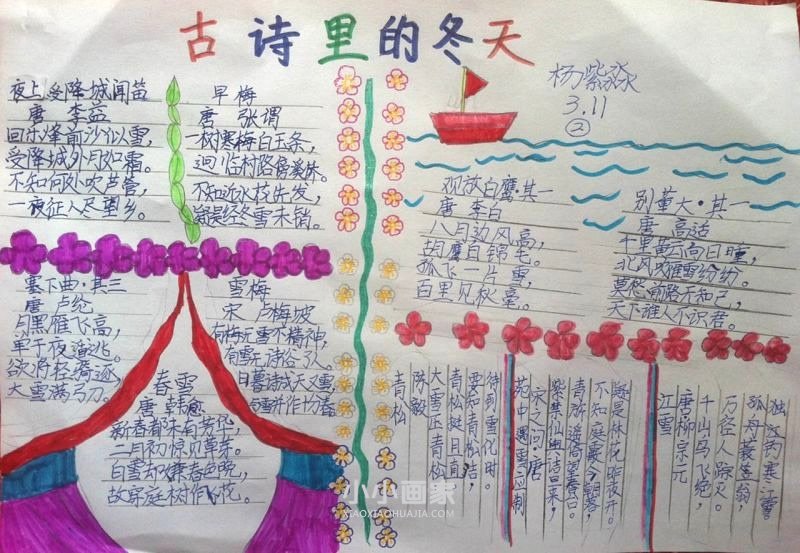 古诗里的冬天
杨紫淼
3.11
②
夜上受降城闻笛
唐 李益
回乐峰前沙似雪,
受降城外月如霜。
不知何处吹芦管,
一夜征人尽望乡。
早梅
唐 张谓
一树寒梅白玉条,
迥临村路傍溪桥。
不知近水花先发,
疑是经冬雪未销。
观放白鹰·其一
唐 李白
八月边风高,
胡鹰白锦毛。
孤飞一片雪,
百里见秋毫。
别董大·其一
唐 高适
千里黄云白日曛,
北风吹雁雪纷纷。
莫愁前路无知己,
天下谁人不识君。
塞下曲·其三
唐 卢纶
月黑雁飞高,
单于夜遁逃。
欲将轻骑逐,
大雪满弓刀。
雪梅
宋 卢梅坡
有梅无雪不精神,
有雪无诗俗了人。
日暮诗成天又雪,
春雪
唐 韩愈
新春都未有芳华,
二月初惊见草芽。
白雪却嫌春色晚,
故穿庭树作飞花。
青松
陈毅
大雪压青松
青松挺且直
要知青松洁,
待到雪化时。
苑中遇雪应制
宋之问·唐
紫禁仙舆诘旦来,
青旂遥倚望春台。
不知庭霰今朝落,
疑是林花昨夜开。
江雪
唐柳宗元
千山鸟飞绝,
万径人踪灭。
孤舟蓑笠翁,
独钓寒江雪
小小画家
XIAOXIAOHUAJIA.COM